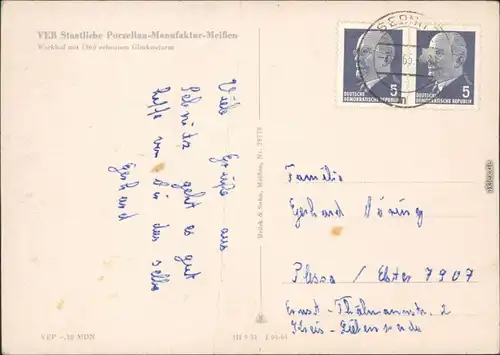 VEB Staatliche Porzellan-Manufaktur-Meißen
Werkhof mit (36)
Viele Grüße aus
Sebnitz geht es gut
hoffe von dir das selbe
Gerhard
Brück & Sohn, Meißen, Nr.
DEUTSCHE
DEMOKRATISCHE REPUBLIK
5
DEUTSCHE
DEMOKRATISCHE REPUBLIK
5
Familie
Gerhard Döring
Plessa / Elster 7907
Ernst-Thälmannstr. 2
Kreis-Liebenwerda
VEP -,10 MDN
III 9 51